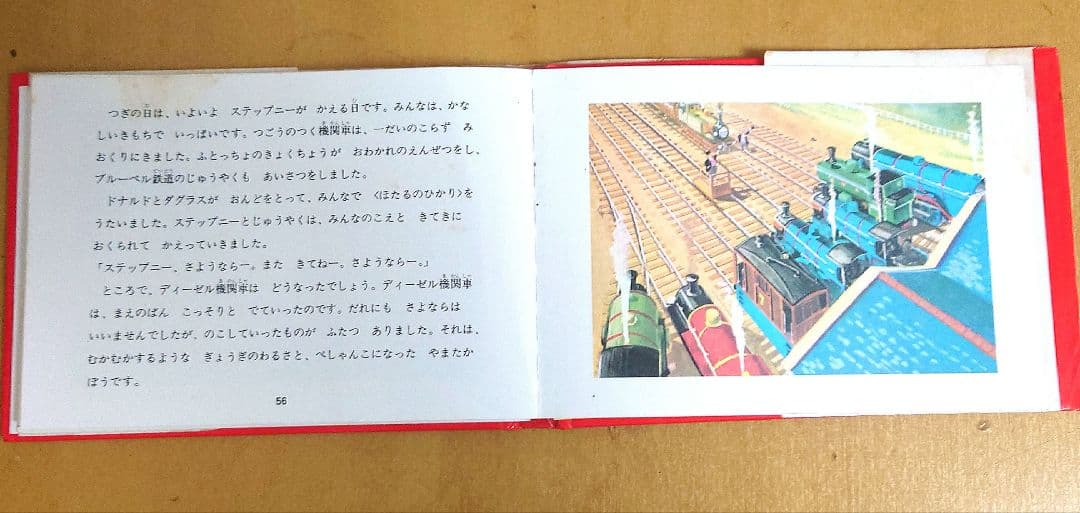 つぎの日は、いよいよ ステップニーが かえる日です。みんなは、かな
しいきもちで いっぱいです。つごうのつく機関車は、一だいのこらず み
おくりにきました。ふとっちょのきょくちょうが おわかれのえんぜつをし、
ブルーベル鉄道のじゅうやくも あいさつをしました。
ドナルドとダグラスが おんどをとって、みんなで 〈ほたるのひかり〉を
うたいました。ステップニーとじゅうやくは、みんなのこえと きてきに
おくられて かえっていきました。
「ステップニー、さようならー。また きてねー。さようならー。」
ところで、ディーゼル機関車は どうなったでしょう。ディーゼル機関車
は、まえのばん こっそりと でていったのです。だれにも さよならは
いいませんでしたが、のこしていったものが ふたつ ありました。それは、
むかむかするような ぎょうぎのわるさと、ぺしゃんこになった やまたか
ぼうです。
56